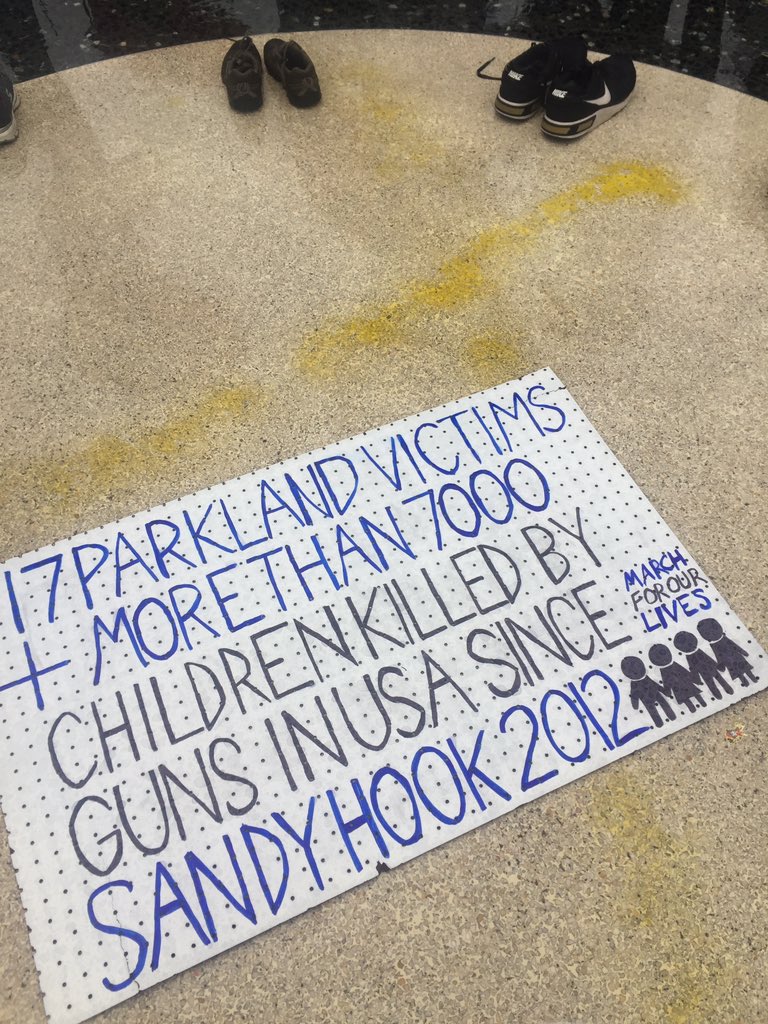 NIKE
NIKE
17 PARKLAND VICTIMS
+ MORE THAN 7000
CHILDREN KILLED BY
GUNS IN USA SINCE
SANDY HOOK 2012
MARCH
FOR OUR
LIVES